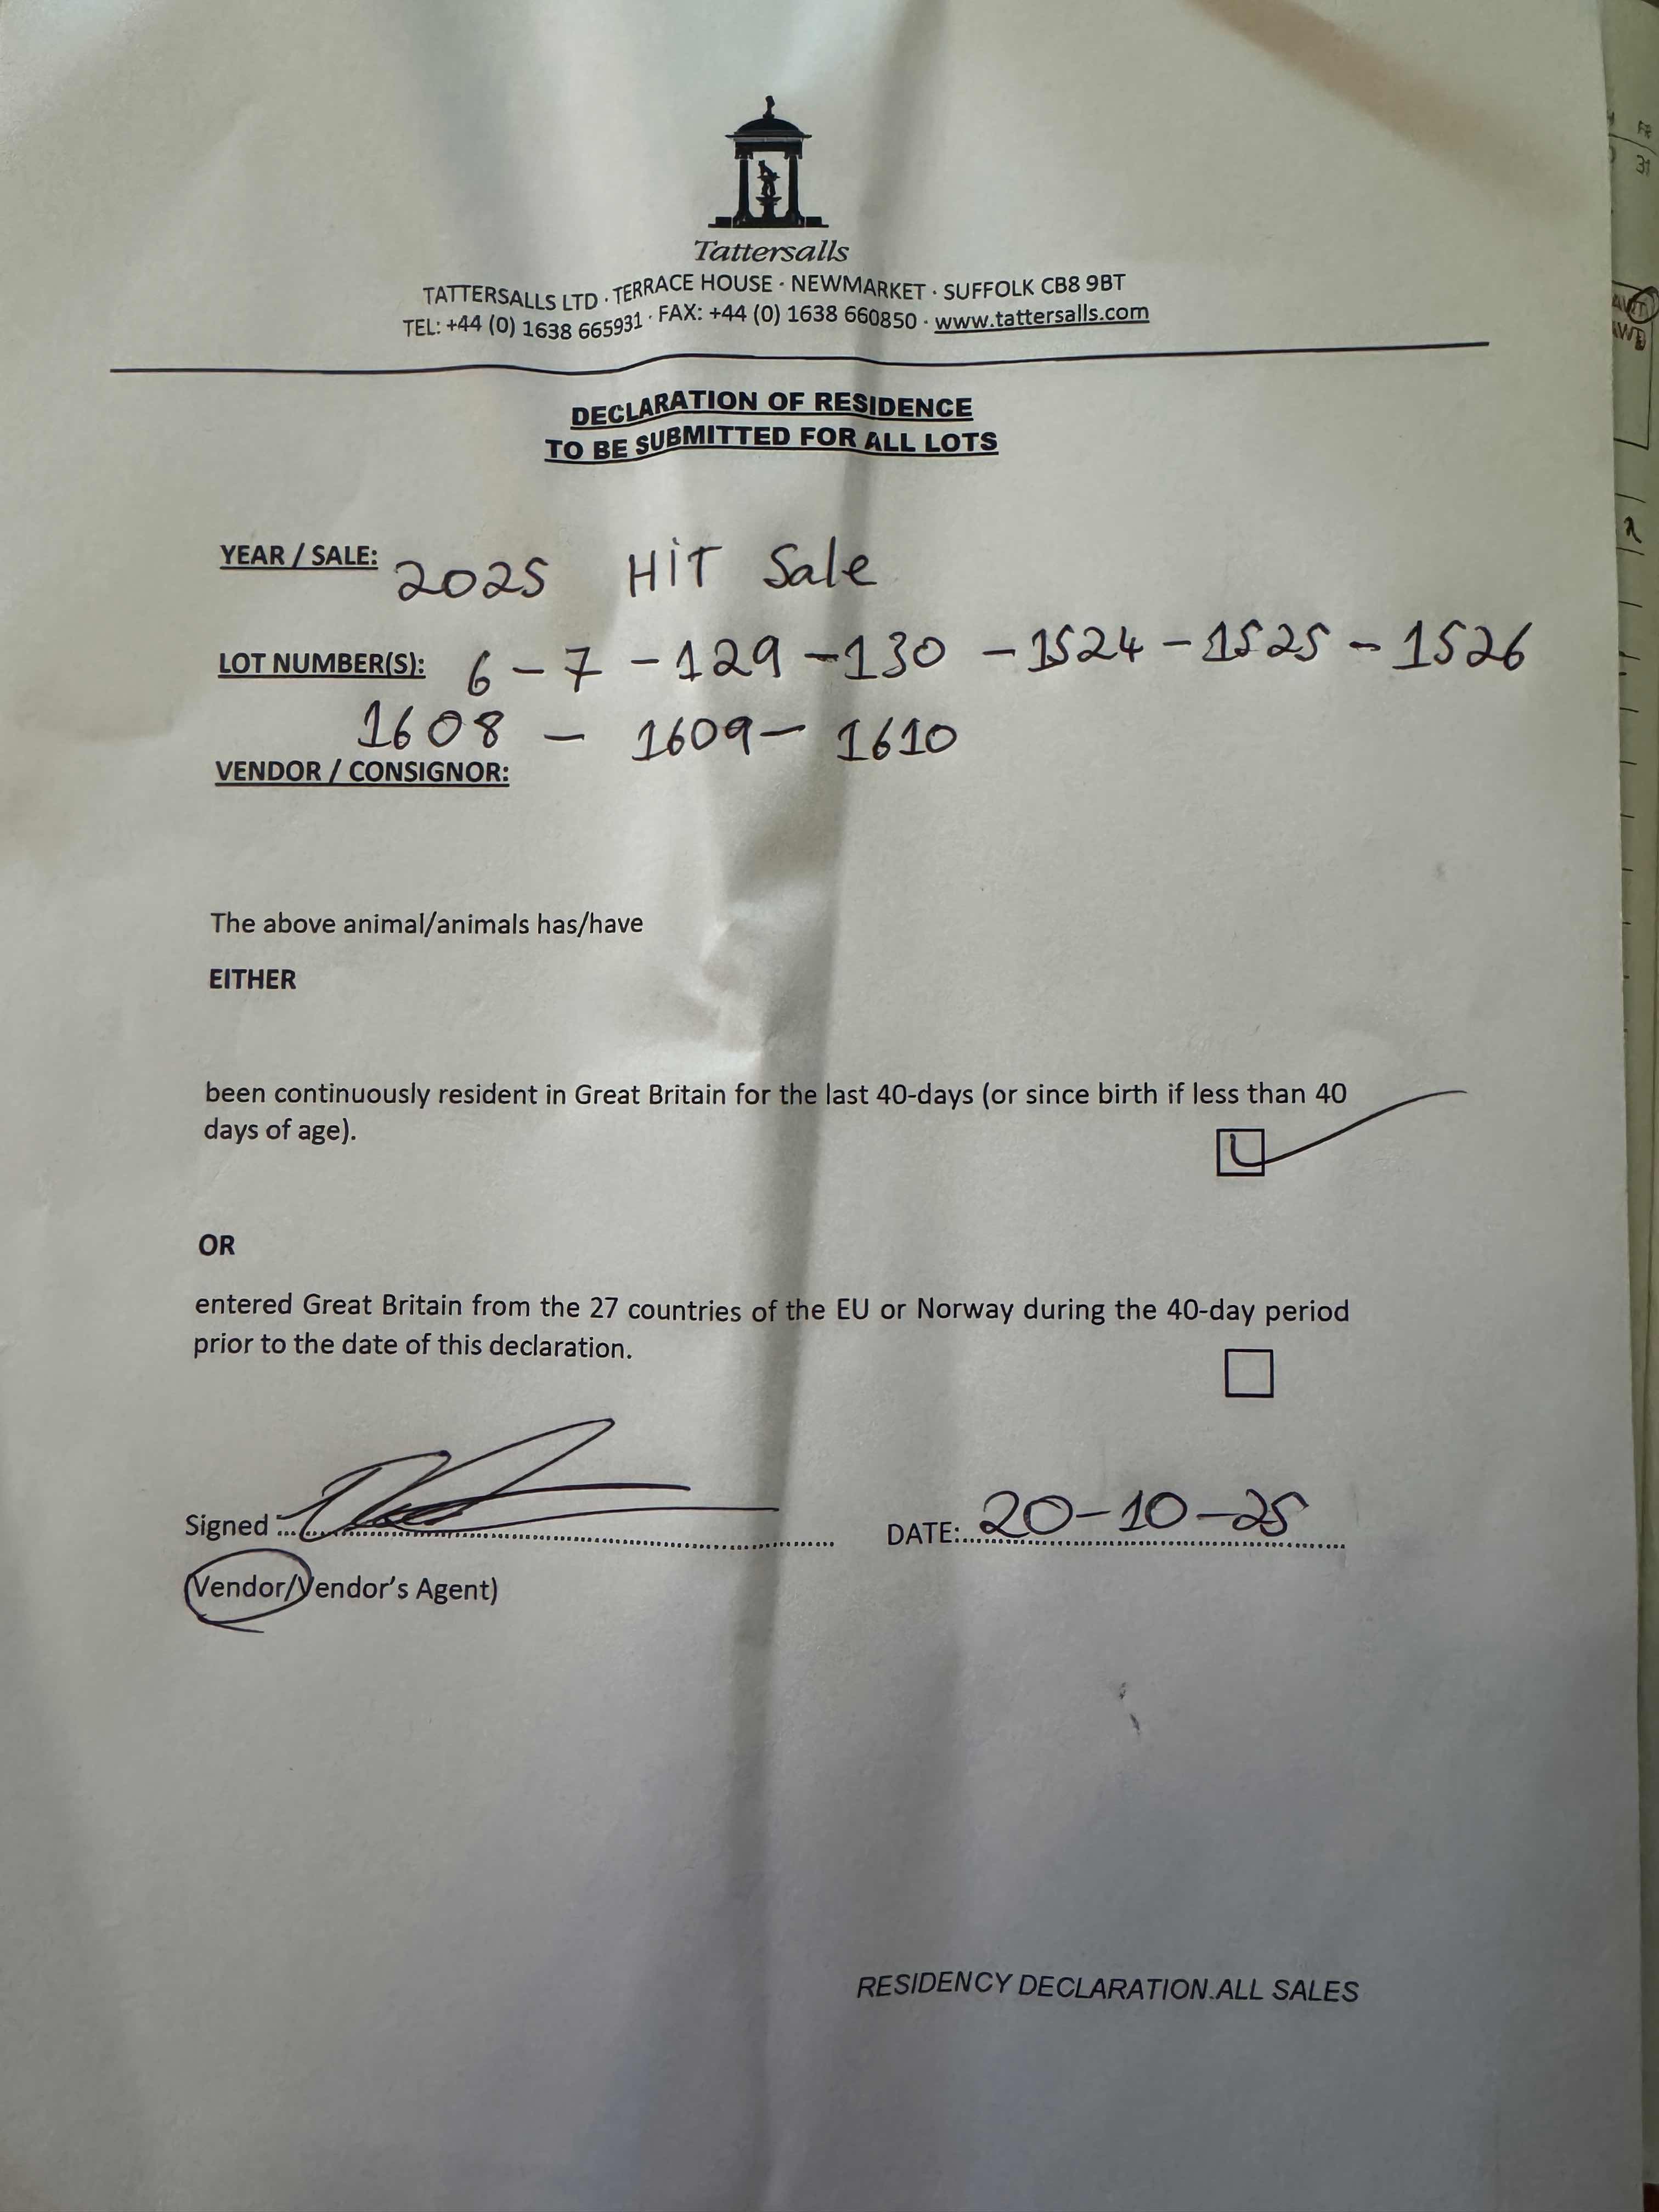 Tattersalls
TATTERSALLS LTD · TERRACE HOUSE · NEWMARKET · SUFFOLK CB8 9BT
TEL: +44 (0) 1638 665931 · FAX: +44 (0) 1638 660850 · www.tattersalls.com
DECLARATION OF RESIDENCE
TO BE SUBMITTED FOR ALL LOTS
YEAR / SALE: 2025 HiT Sale
LOT NUMBER(S): 6 - 7 - 129 - 130 - 1524 - 1525 - 1526
1608 - 1609 - 1610
VENDOR / CONSIGNOR:
The above animal/animals has/have
EITHER
been continuously resident in Great Britain for the last 40-days (or since birth if less than 40
days of age).
OR
entered Great Britain from the 27 countries of the EU or Norway during the 40-day period
prior to the date of this declaration.
Signed DATE: 20-10-25
(Vendor/Vendor's Agent)
RESIDENCY DECLARATION.ALL SALES
31